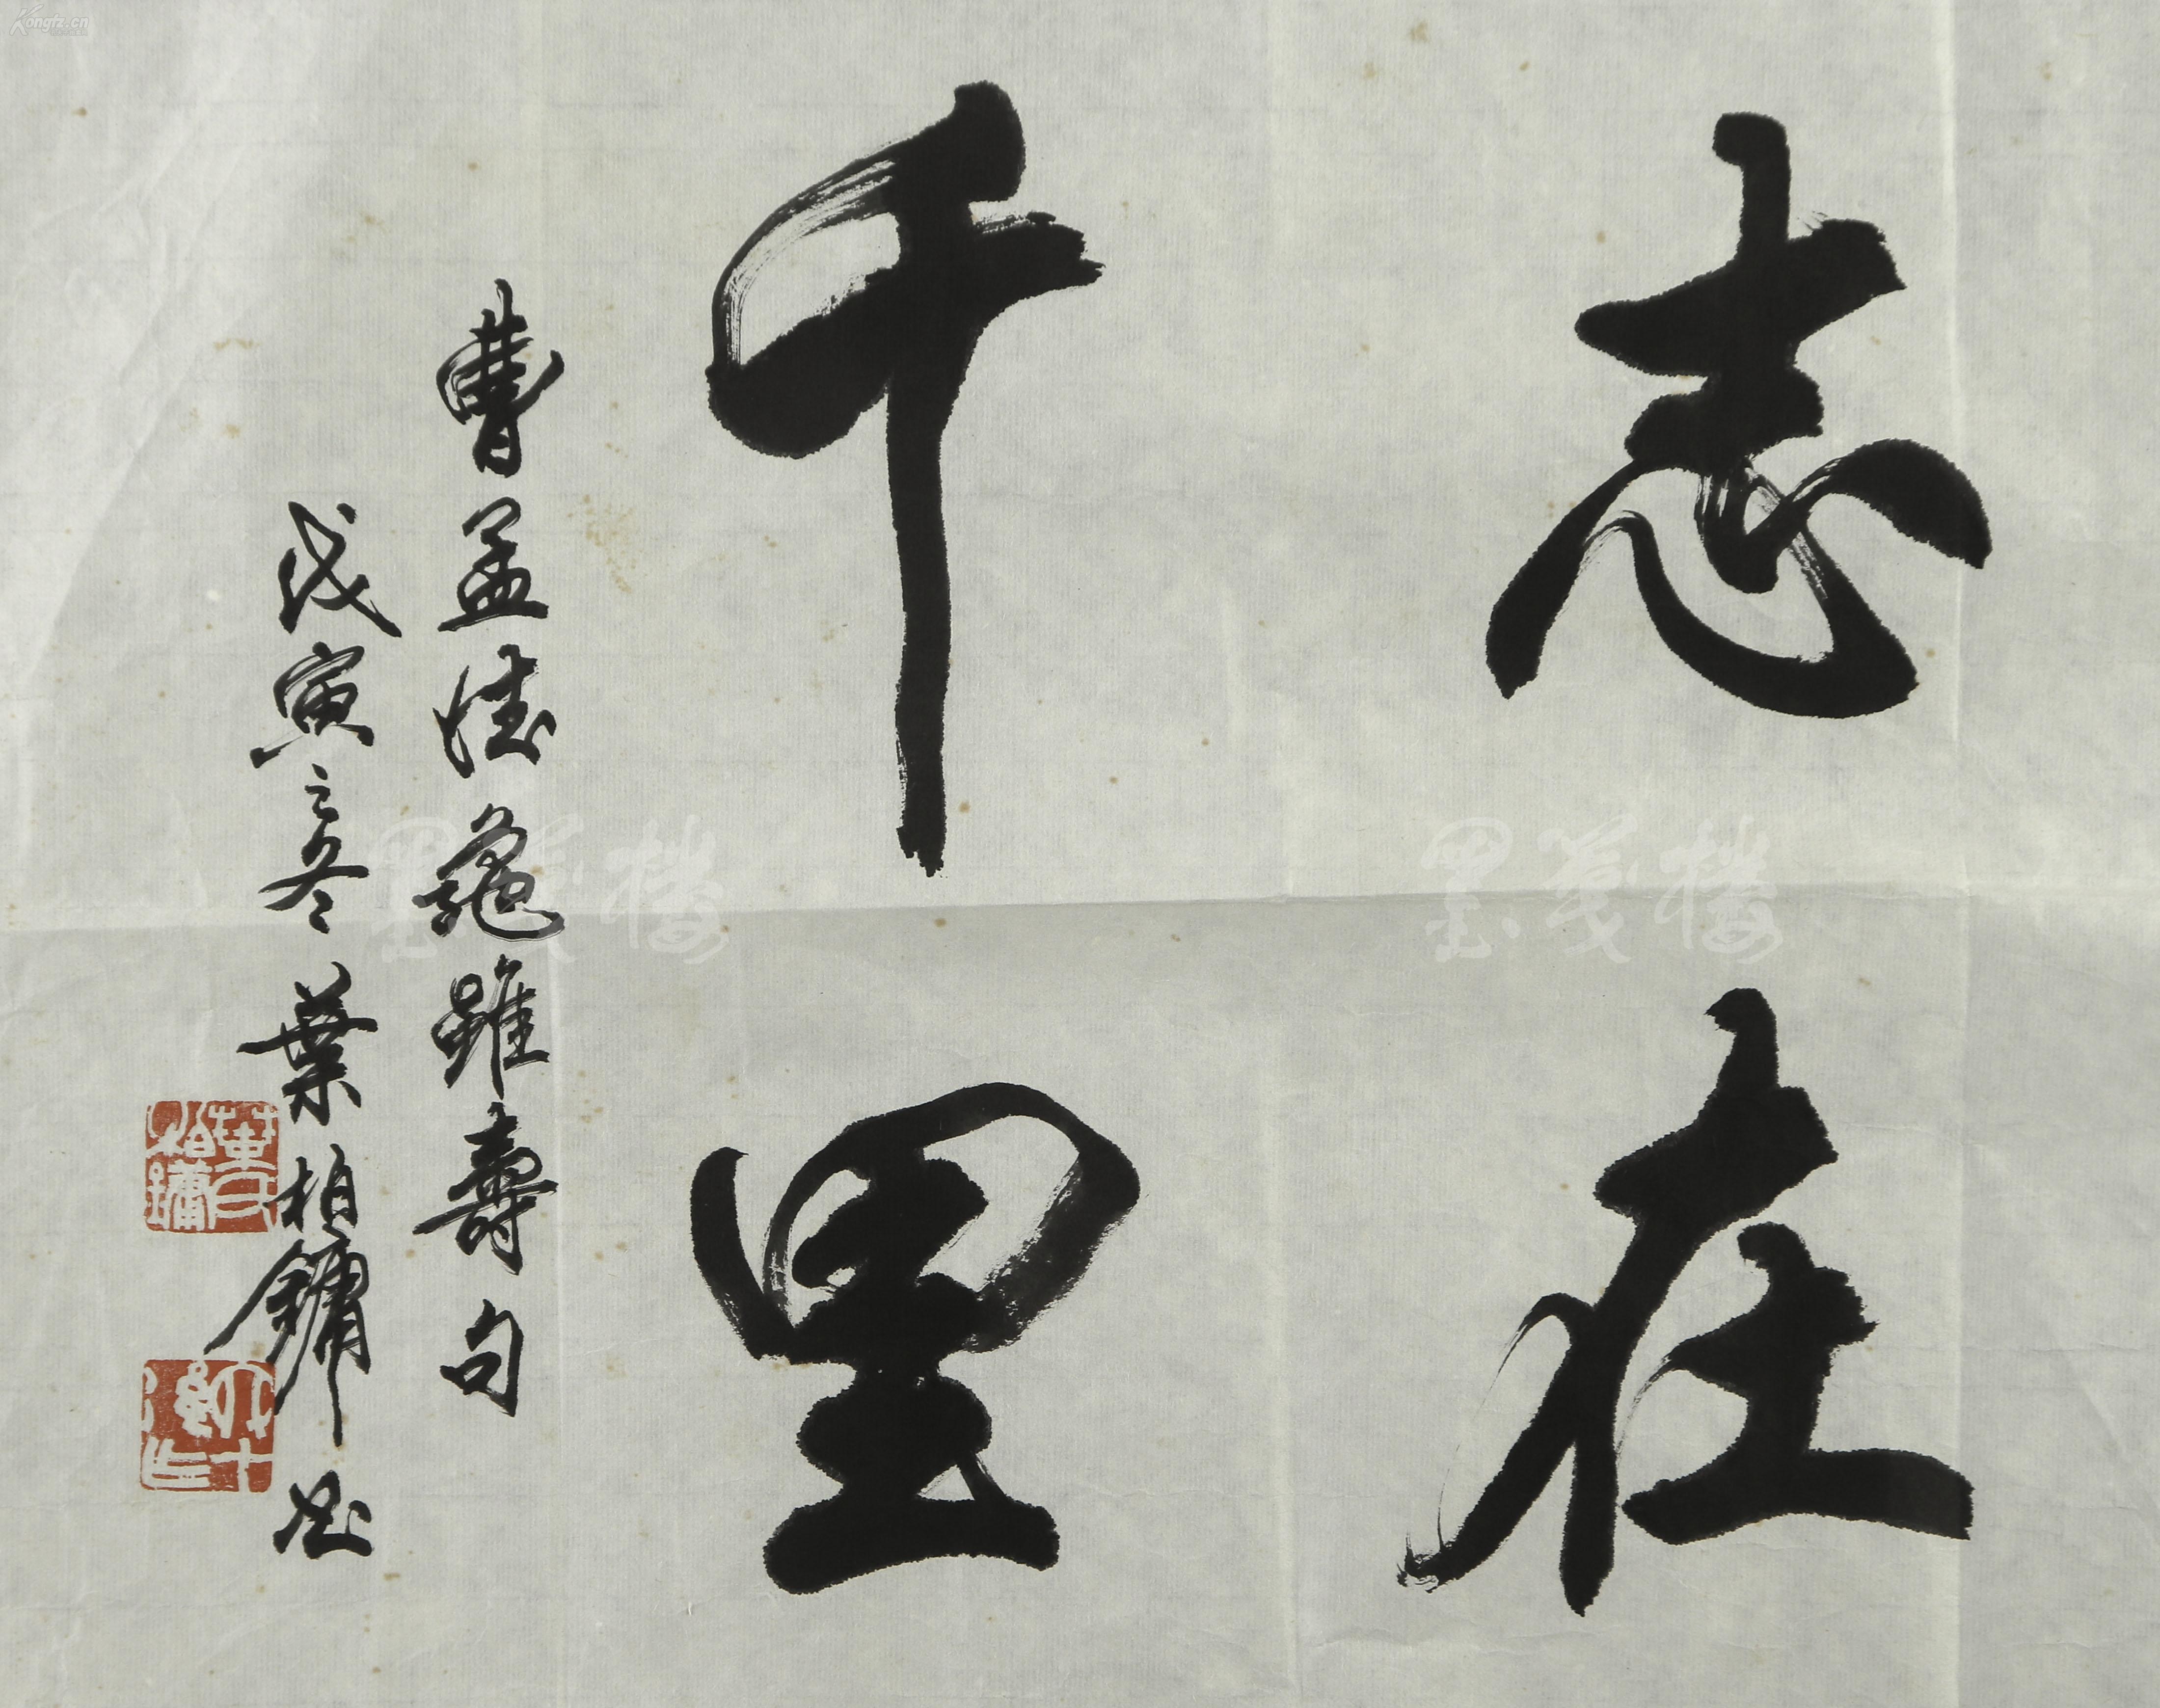 志在
千里
曹孟德龜雖壽句
戊寅之冬 葉柏鏞書
墨笺楼
墨笺楼
Kongfz.cn